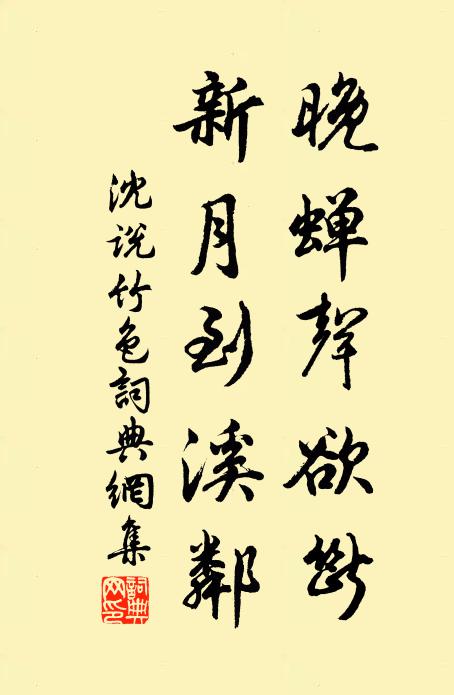 晚蟬聲欲斷
新月到溪鄰
沈說竹色詞典網集
詞典網印